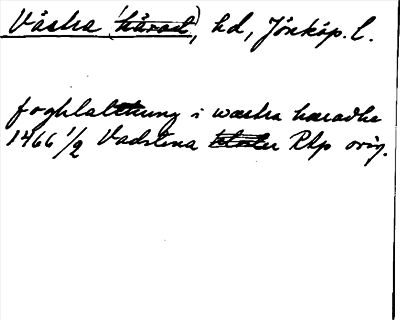 Västra (härad), hd, Jönköp. l.
foghlalthung i wæstra hæradhe
1466 1/2 Vadstena kloster RAp orig.